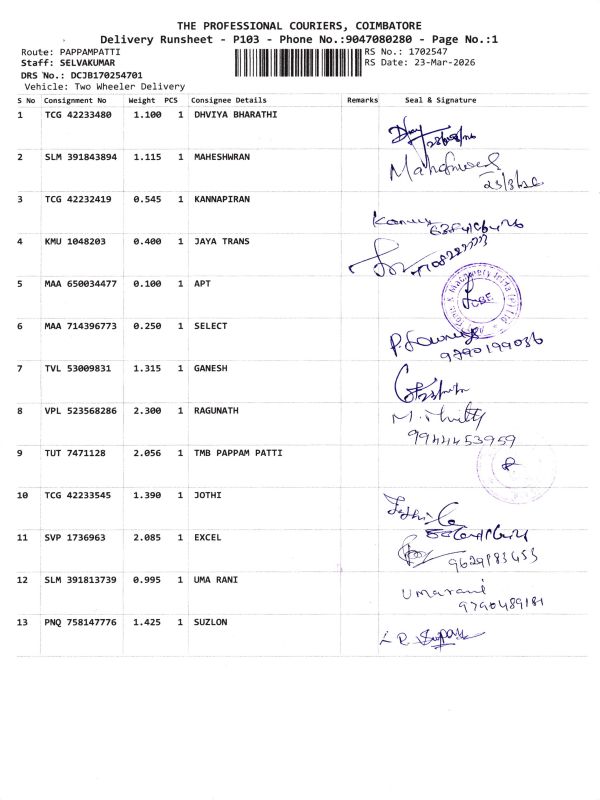 THE PROFESSIONAL COURIERS, COIMBATORE
Delivery Runsheet - P103 - Phone No.:9047080280 - Page No.:1
Route: PAPPAMPATTI RS No.: 1702547
Staff: SELVAKUMAR RS Date: 23-Mar-2026
DRS No.: DCJB170254701
Vehicle: Two Wheeler Delivery
S No Consignment No Weight PCS Consignee Details Remarks Seal & Signature
1 TCG 42233480 1.100 1 DHVIYA BHARATHI
2 SLM 391843894 1.115 1 MAHESHWRAN
23/3/26
3 TCG 42232419 0.545 1 KANNAPIRAN
4 KMU 1048203 0.400 1 JAYA TRANS
5 MAA 650034477 0.100 1 APT
6 MAA 714396773 0.250 1 SELECT
9790199036
7 TVL 53009831 1.315 1 GANESH
8 VPL 523568286 2.300 1 RAGUNATH
9944453959
9 TUT 7471128 2.056 1 TMB PAPPAM PATTI
10 TCG 42233545 1.390 1 JOTHI
11 SVP 1736963 2.085 1 EXCEL
9629983453
12 SLM 391813739 0.995 1 UMA RANI
Umarani
9790489181
13 PNQ 758147776 1.425 1 SUZLON